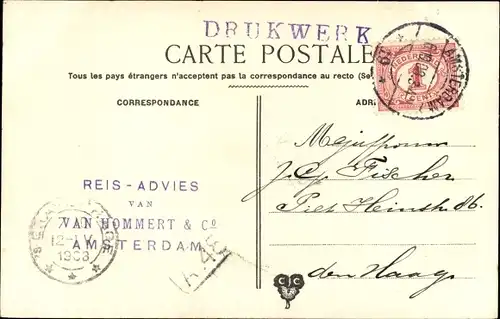 DRUKWERK
CARTE POSTALE
Tous les pays étrangers n'acceptent pas la correspondance au recto (Se
CORRESPONDANCE
ADR
AMSTERDAM
NEDERLAND
1
CENT
Mejuffrouw
J. C. Fischer
Piet Heinstr 86.
den Haag
REIS-ADVIES
VAN
VAN HOMMERT & Co
AMSTERDAM
12-IV
1908
C C